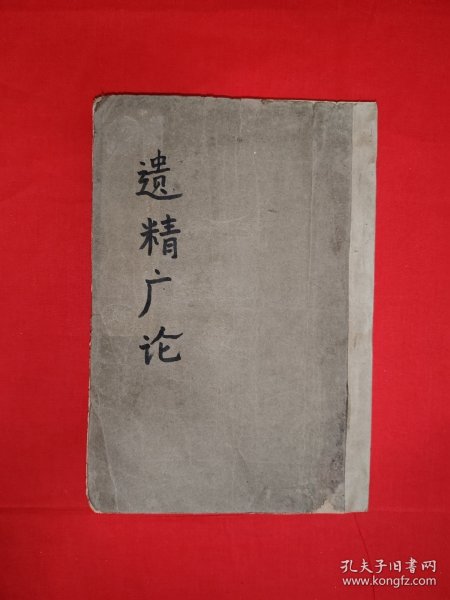 遗精广论
孔夫子旧书网
www.kongfz.com